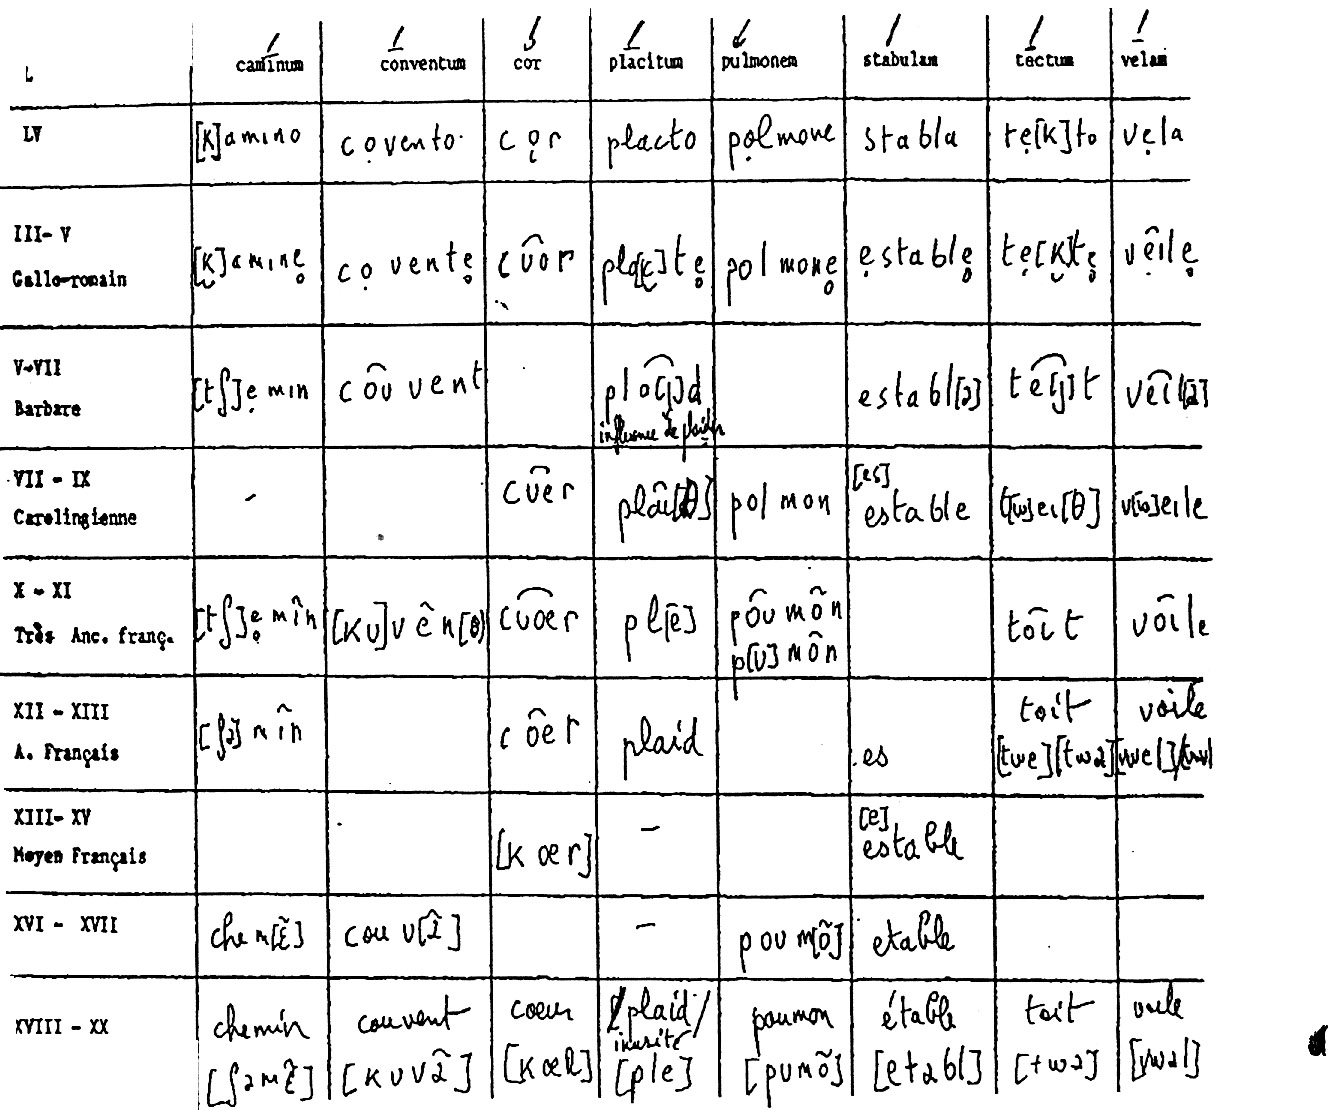 L camīnum conventum cor placitum pulmonem stabulam tectum velam
LV [K]amino covento cor placto polmone stabla te[K]to vela
III- V
Gallo-romain [K]amine covente cuor pla[K]te polmone estable te[K]te veile
V-VII
Barbare [tʃ]emin couvent pla[j]d establ[ə] te[j]t veil[ə]
influence de plaidir
VII - IX
Carolingienne - cuer plait[θ] polmon [es] estable t[w]ei[θ] v[w]eile
X - XI
Très Anc. franç. [tʃ]emin [KU]ven[θ] cuoer pl[e] poumon toit voile
p[U]mon
XII - XIII
A. Français [ʃə]min coer plaid es toit voile
[twe][twa] [vwel]
XIII- XV
Moyen Français [Kœr] - [e] estable
XVI - XVII chem[ɛ̃] couv[ã] - poum[õ] etable
XVIII - XX chemin couvent coeur plaid/ poumon étable toit voile
inusité
[ʃəmɛ̃] [kuvã] [Kœʀ] [ple] [pumõ] [etabl] [twa] [vwal]